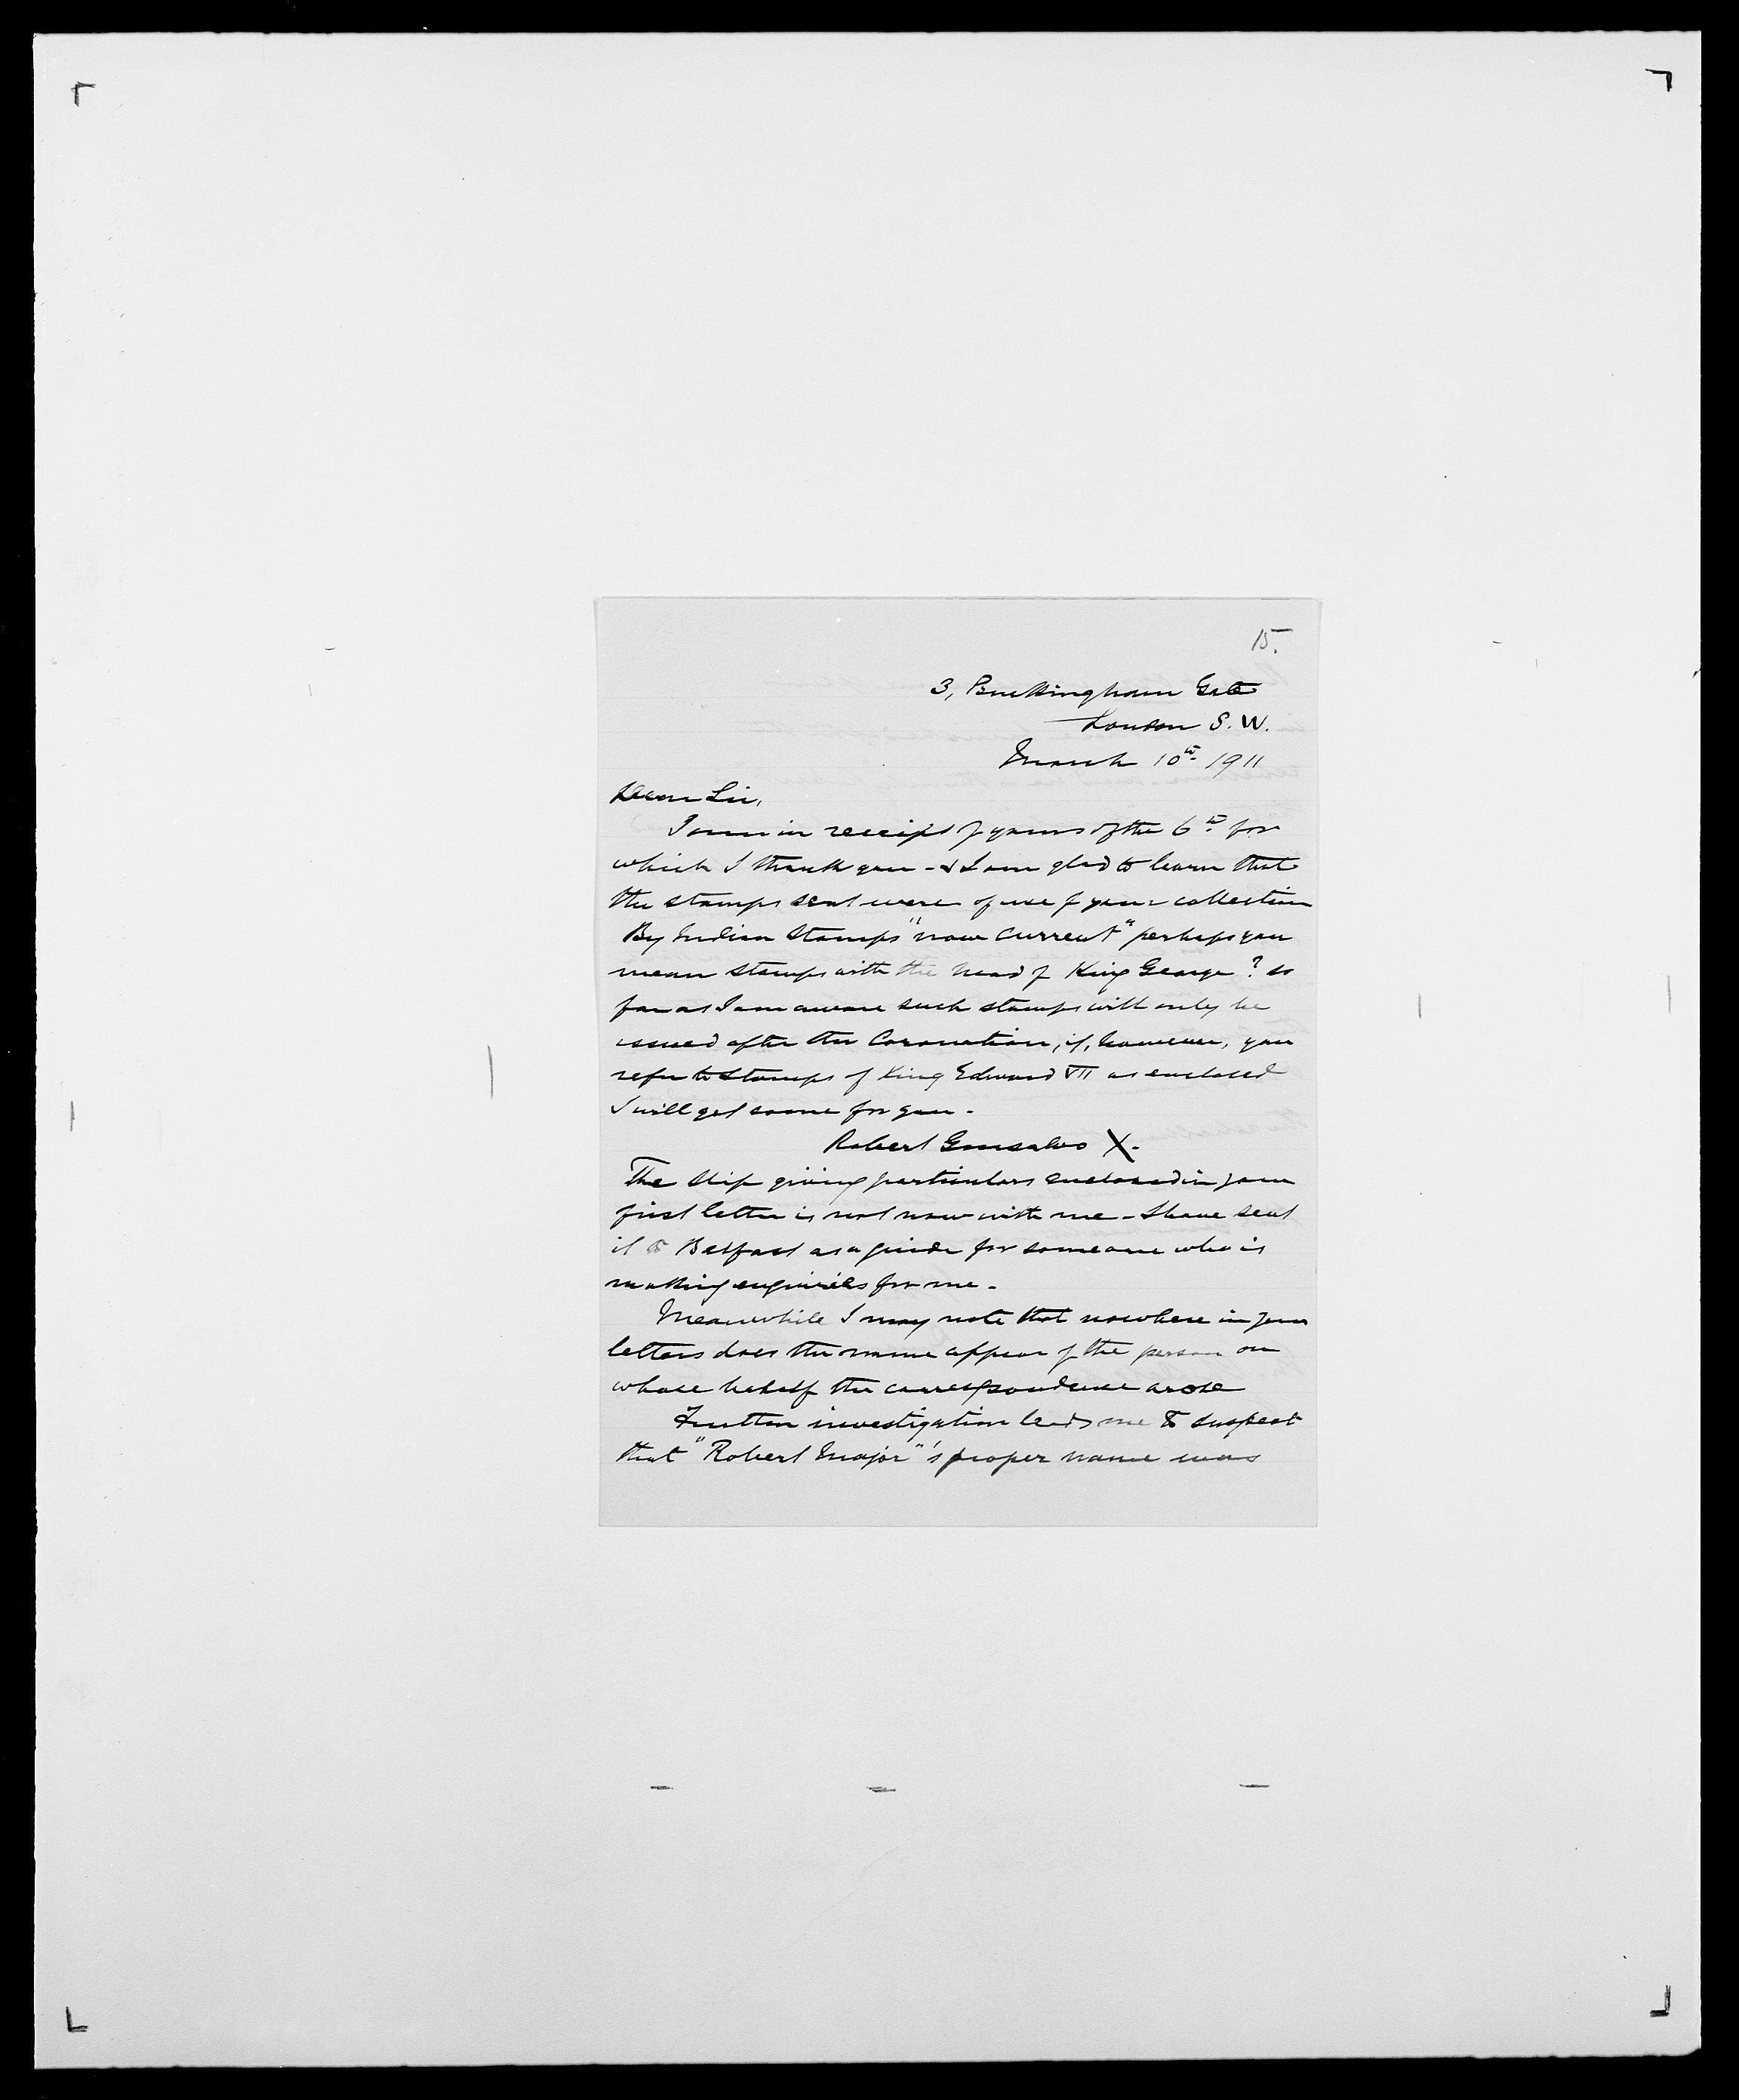 15.
3, Buckingham Gate
London S.W.
March 10th 1911
Dear Sir,
I am in receipt of yours of the 6th for
which I thank you - & I am glad to learn that
the stamps sent were of use for your collection
By Indian Stamps "now current" perhaps you
mean stamps with the head of King George? so
far as I am aware such stamps will only be
issued after the Coronation, if, however, you
refer to stamps of King Edward VII as enclosed
I will get some for you -
Robert Gonsalvo X.
The slip giving particulars enclosed in your
first letter is not now with me - I have sent
it to Belfast as a guide for someone who is
making enquiries for me -
Meanwhile I may note that nowhere in your
letters does the name appear of the person on
whose behalf the correspondence arose
Further investigation leads me to suspect
that "Robert Major"'s proper name was